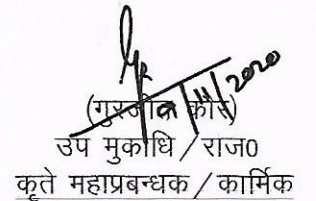 11/2020
(गुरजीत कौर)
उप मुकाधि / राज0
कृते महाप्रबन्धक / कार्मिक